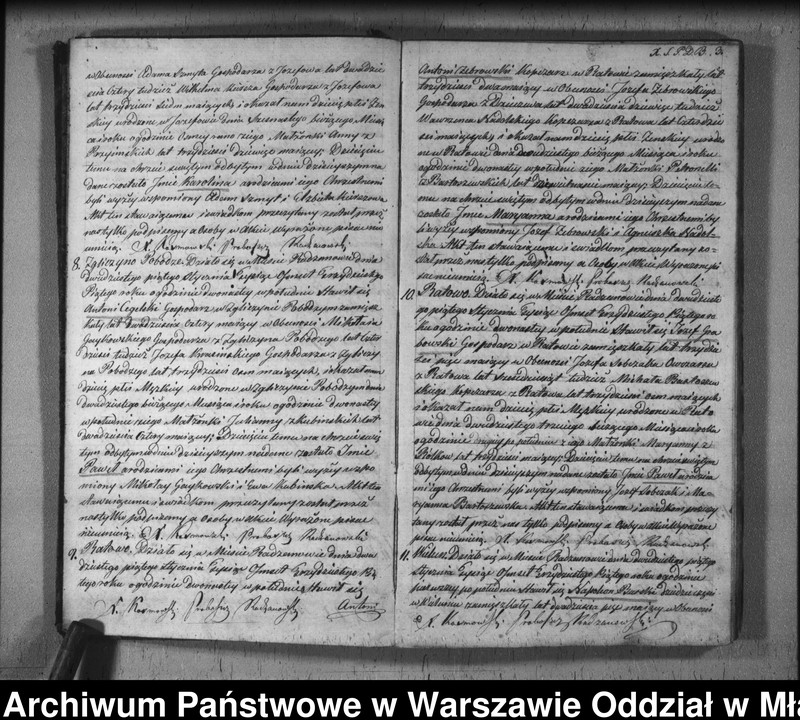 w Obecności Adama Szmyta Gospodarza z Józefowa lat dwadzie
ścia cztery tudzież Wilhelma Gospodarza z Józefowa
lat trzydzieści siedm mających i okazał nam dziecię płci Żeń
skiej urodzone w Józefowie dnia bieżącego Miesią
ca i roku o godzinie ósmej rano z jego Małżonki Anny z
lat trzydzieści dziewięć mającej. Dziecięciu
temu na chrzcie świętym odbytym w dniu dzisiejszym na
dane zostało Imię Karolina a rodzicami jego Chrzestnymi
byli wyżej wspomniony Adam Szmyt i Elżbieta
Akt ten stawającemu i świadkom przeczytany został przez
nas tylko podpisany a Osoby w Akcie wyrażone pisać nie
umieją. X. Proboszcz Radzanowski
8. Zgliczyno Pobodze. Działo się w Mieście Radzanowie dnia
dwudziestego piątego Stycznia Tysiąc Ośmset Trzydziestego
Piątego roku o godzinie dwunastej w południe Stawił się
Antoni Cegelski Gospodarz w Zgliczynie Pobodzym zamiesz
kały lat dwadzieścia cztery mający w Obecności Mikołaja
Gospodarza z Zgliczyna Pobodzego lat czter
dzieści tudzież Józefa Gospodarza z Zgliczy
na Pobodzego lat trzydzieści ośm mających, i okazał nam
dziecię płci Męzkiej urodzone w Zgliczynie Pobodzym dnia
dwudziestego bieżącego Miesiąca i roku o godzinie dwunastej
w południe z jego Małżonki Julianny z Rubińskich lat
dwadzieścia cztery mającej. Dziecięciu temu na chrzcie świę
tym odbytym w dniu dzisiejszym nadane zostało Imie
Paweł a rodzicami jego Chrzestnymi byli wyżej wspo
mniony Mikołaj i Ewa Rubińska Akt ten
stawającemu i świadkom przeczytany został przez
nas tylko podpisany a Osoby w Akcie Wyrażone pisać
nieumieją. X. Proboszcz Radzanowski
9. Ratowo. Działo się w Mieście Radzanowie dnia dwu
dziestego piątego Stycznia Tysiąc Ośmset Trzydziestego Pią
tego roku o godzinie dwunastej w południe Stawił się
X. Proboszcz Radzanowski Antoni
3.
Antoni Żebrowski Kopczarz w Ratowie zamieszkały lat
trzydzieści dwa mający w Obecności Józefa Żebrowskiego
Gospodarza z lat dwadzieścia dziewięć tudzież
Wawrzeńca Nadolskiego Kopczarza z Ratowa lat czterdzie
ści mających i okazał nam dziecię płci Żeńskiej urodzo
ne w Ratowie dnia dwudziestego bieżącego Miesiąca i roku
o godzinie dwunastej w południe z jego Małżonki Petronelli
z Bartoszewskich lat mającej Dziecięciu te
mu na chrzcie świętym odbytym w dniu dzisiejszym nadane
zostało Imie Maryanna a rodzicami jego Chrzestnymi by
li wyżej wspomniony Józef Żebrowski i Agnieszka Nadol
ska Akt ten stawającemu i świadkom przeczytany zo
stał przez nas tylko podpisany a Osoby w Akcie Wyrażone pi
sać nieumieją. X. Proboszcz Radzanowski
10. Ratowo. Działo się w Mieście Radzanowie dnia dwudzieste
go piątego Stycznia Tysiąc Ośmset Trzydziestego Piątego ro
ku o godzinie dwunastej w południe Stawił się Józef Gra
bowski Gospodarz w Ratowie zamieszkały lat trzydzie
ści mający w Obecności Józefa Sobczaka Owczarza
z Ratowa lat sześćdziesiąt tudzież Michała Bartoszew
skiego Kopczarza z Ratowa lat trzydzieści ośm mających
i okazał nam dziecię płci Męzkiej urodzone w Rato
wie dnia dwudziestego trzeciego bieżącego Miesiąca i roku
o godzinie po południu z jego Małżonki Maryanny z
lat trzydzieści mającej Dziecięciu temu na chrzcie świętym
odbytym w dniu dzisiejszym nadane zostało Imie Paweł a rodzica
mi jego Chrzestnymi byli wyżej wspomniony Józef Sobczak i Ma
ryanna Bartoszewska Akt ten stawającemu i świadkom przeczy
tany został przez nas tylko podpisany a Osoby w Akcie wyrażone
pisać nieumieją. X. Proboszcz Radzanowski
11. Działo się w Mieście Radzanowie dnia dwudziestego piątego
Stycznia Tysiąc Ośmset Trzydziestego Piątego roku o godzinie
pierwszej po południu Stawił się Napoleon dziedzic wsi
zamieszkały lat dwadzieścia mający w Obecności
X. Proboszcz Radzanowski
Archiwum Państwowe w Warszawie Oddział w Mł